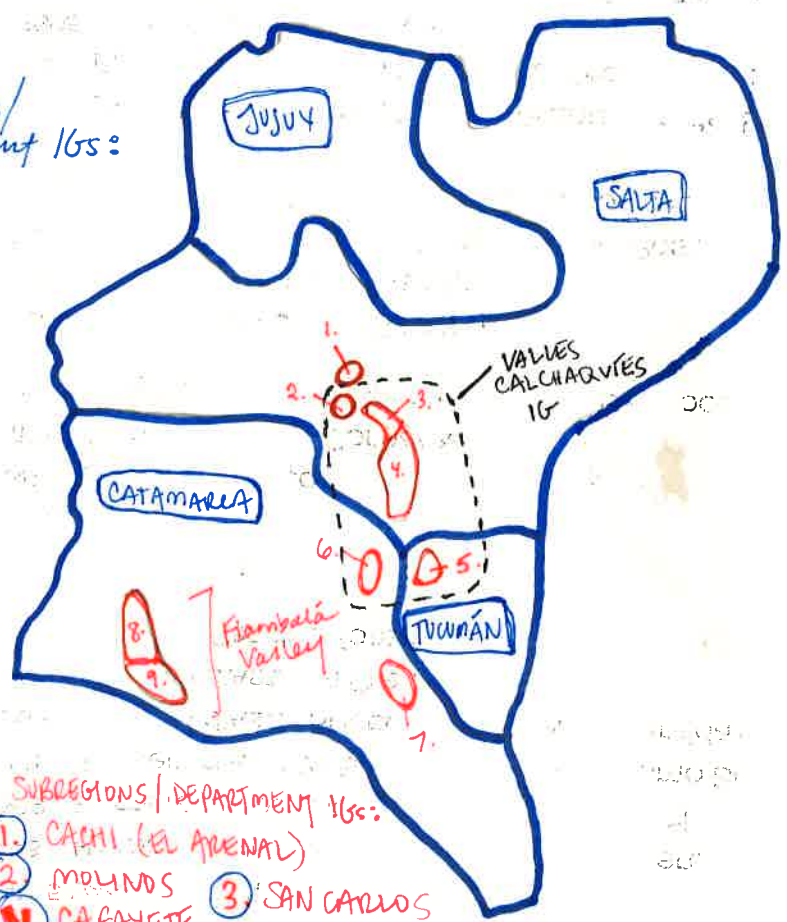 IGs:
JUJUY
SALTA
1.
VALLES
CALCHAQUIES
IG
2.
3.
4.
CATAMARCA
6.
5.
8.
Fiambalá
Valley
TUCUMÁN
9.
7.
SUBREGIONS/DEPARTMENT IGs:
1. CACHI (EL ARENAL)
2. MOLINOS 3. SAN CARLOS
CAFAYETE